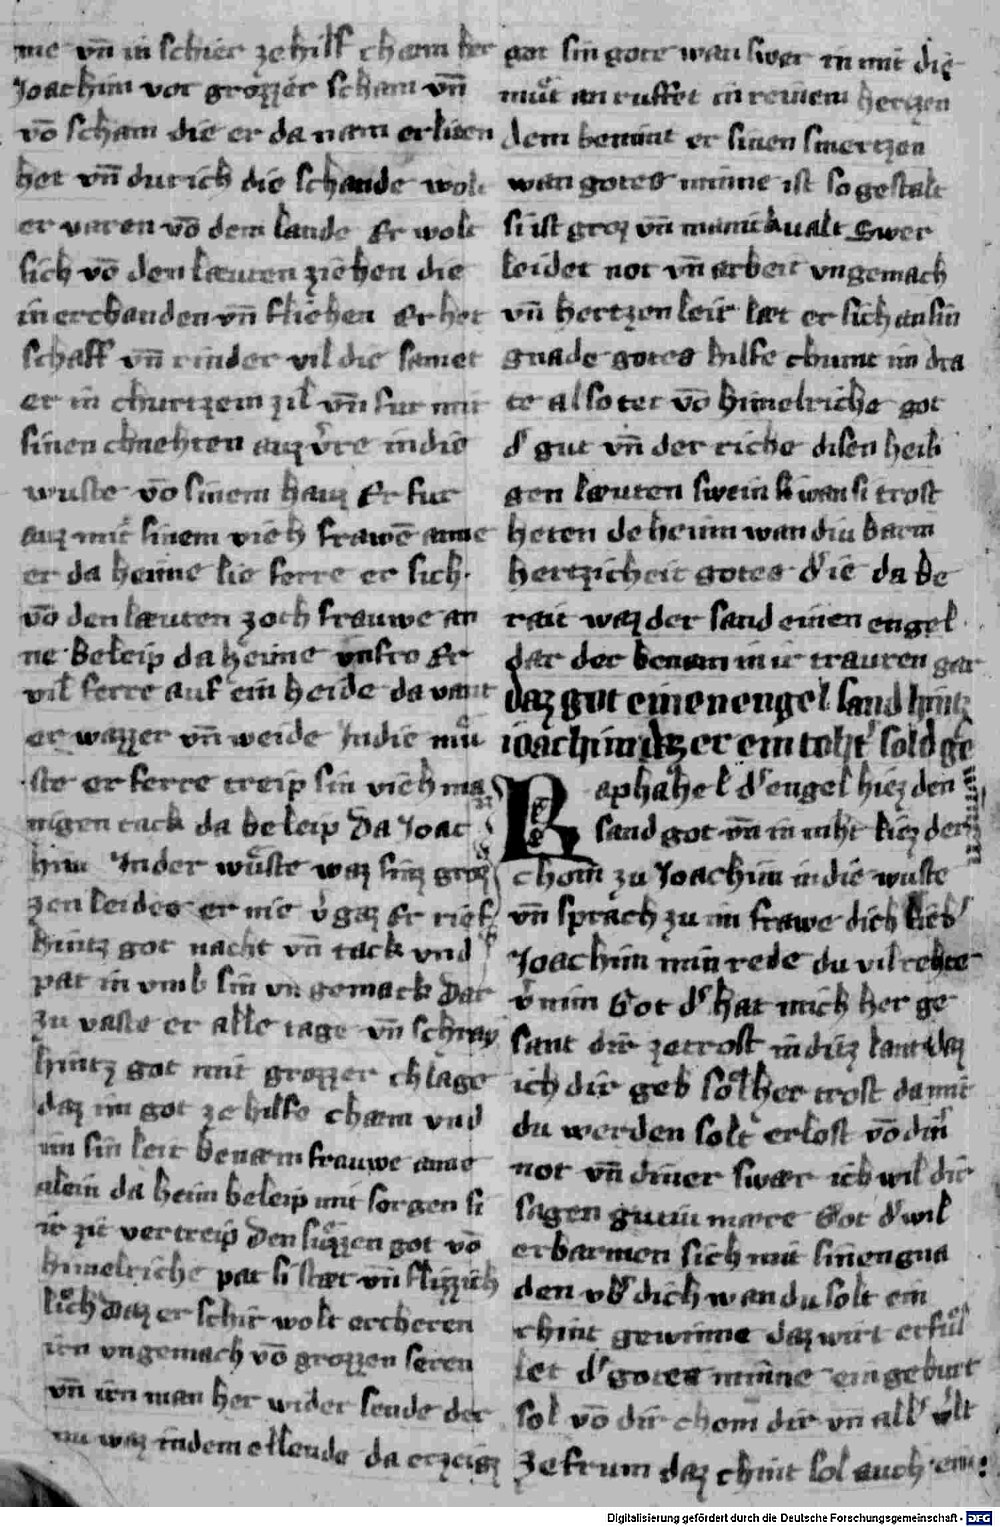 me vn̄ in schier ze hilf cham her
Joachim vor grozzer scham vn̄
võ scham die er da nam erliten
het vn̄ durich die schande wolt
er varen võ dem lande Er wolt
sich võ den læuten ziehen die
in erchanden vn̄ fliehen Er het
schaff vn̄ rinder vil die samet
er in churtzem zil vn̄ fur mit
sinen chnehten auz v̾re in die
wuste võ sinem hauz Er fur
auz mit sinem vieh frawē anne
er da heime lie ferre er sich
võ den læuten zoch frauwe an
ne beleip da heime vnfro Er
vil ferre auf ein heide da vant
er wazzer vn̄ weide In die mů
ste er ferre treip sin vieh ma
nigen tack da beleip Da Joac
him In der wůste waz sinz groz
zen leides er nie v̾gaz Er rief
hintz got nacht vn̄ tack vnd
pat in vmb sin vngemack Dar
zu vaste er alle tage vn̄ schray
hintz got mit grozzer chlage
daz im got ze hilfe cham vnd
im sin leit benæm frauwe anne
alein da heim beleip mit sorgen si
ir zit vertreip Den sůzzen got võ
himelriche pat si stæt vn̄ flizzich
lich Daz er schir wolt ercheren
irn vngemach võ grozzen seren
vn̄ irn man her wider sende der
nu waz in dem ellende da erzeigt
got sin gote wan swer in mit die
můt an ruffet in reinem hertzen
dem benimt er sinen smertzen
wan gotes minne ist so gestalt
si ist groz vn̄ manichualt Swer
leidet not vn̄ arbeit vngemach
vn̄ hertzenleit læt er sich an sin
gnade gotes hilfe chumt im dra
te also tet võ himelriche got
d̾ gut vn̄ der riche disen heili
gen læuten swein si wan si trost
heten deheim wan diu barm
hertzicheit gotes d̾ ie da be
rait waz der sand einen engel
dar der benam in ir trauren gar
daz got einen engel sand hintz
ioachim daz er ein toht̾ sold ge
Raphahel d̾ engel hiez den
sand got vn̄ in niht liez der
chom zu Joachim in die wuste
vn̄ sprach zu im frawe dich lieb̾
Joachim min rede du vil rehte
v̾nim Got d̾ hat mich her ge
sant dir ze trost in ditz lant daz
ich dir geb solher trost da mit
du werden solt erlost võ din̾
not vn̄ diner swær ich wil dir
sagen gutiu mære Got d̾ wil
erbarmen sich mit sinen gna
den vb̾ dich wan du solt ein
chint gewinne daz wirt erfůl
let d̾ gotes minne ein geburt
sol võ dir chom dir vn̄ all̾ w̾lt
ze frum daz chint sol auch ein